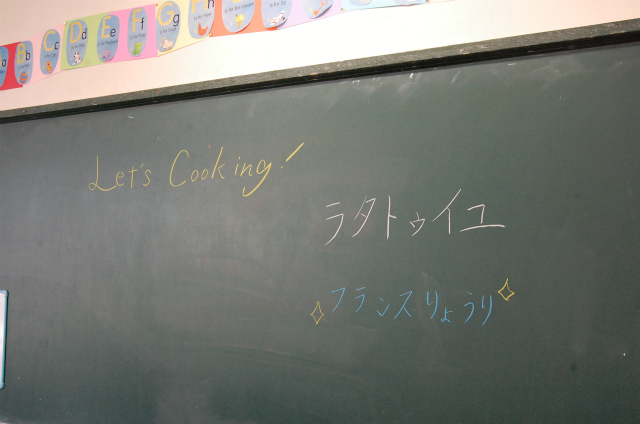 a Bb Cc Dd Ee Ff Gg Hh
Let's Cooking!
ラタトゥイユ
フランスりょうり